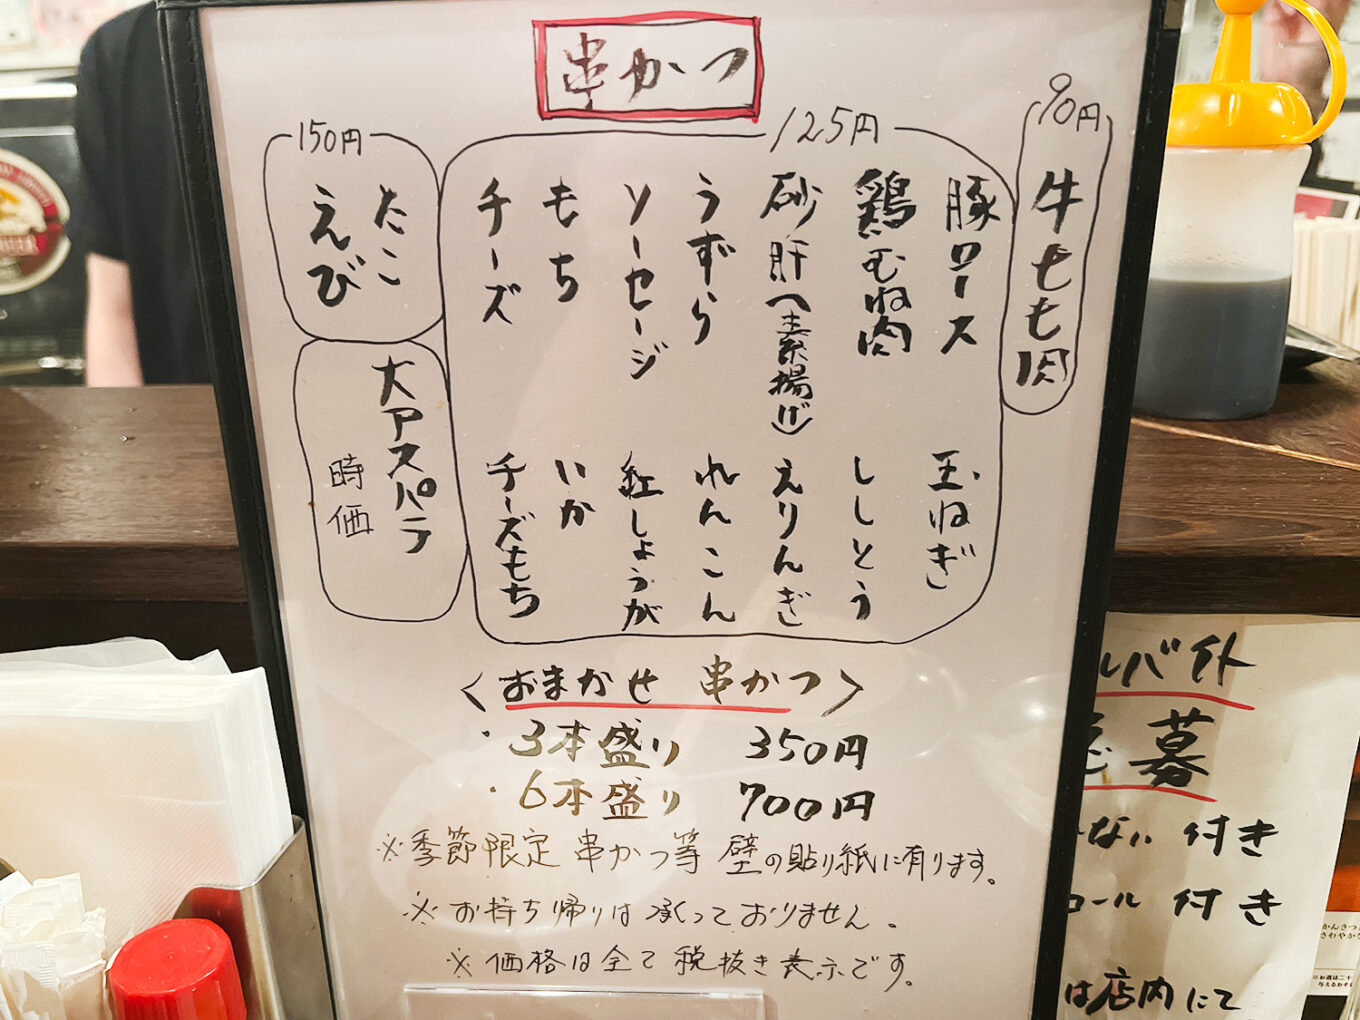 串かつ
90円
牛もも肉
125円
豚ロース
鶏むね肉
砂肝(素揚げ)
うずら
ソーセージ
もち
チーズ
玉ねぎ
ししとう
えりんぎ
れんこん
紅しょうが
いか
チーズもち
150円
たこ
えび
大アスパラ
時価
<おまかせ 串かつ>
・3本盛り 350円
・6本盛り 700円
※季節限定 串かつ等 壁の貼り紙に有ります。
※お持ち帰りは承っておりません。
※価格は全て税抜き表示です。
ルバイト
募
ない 付き
コール 付き
は店内にて